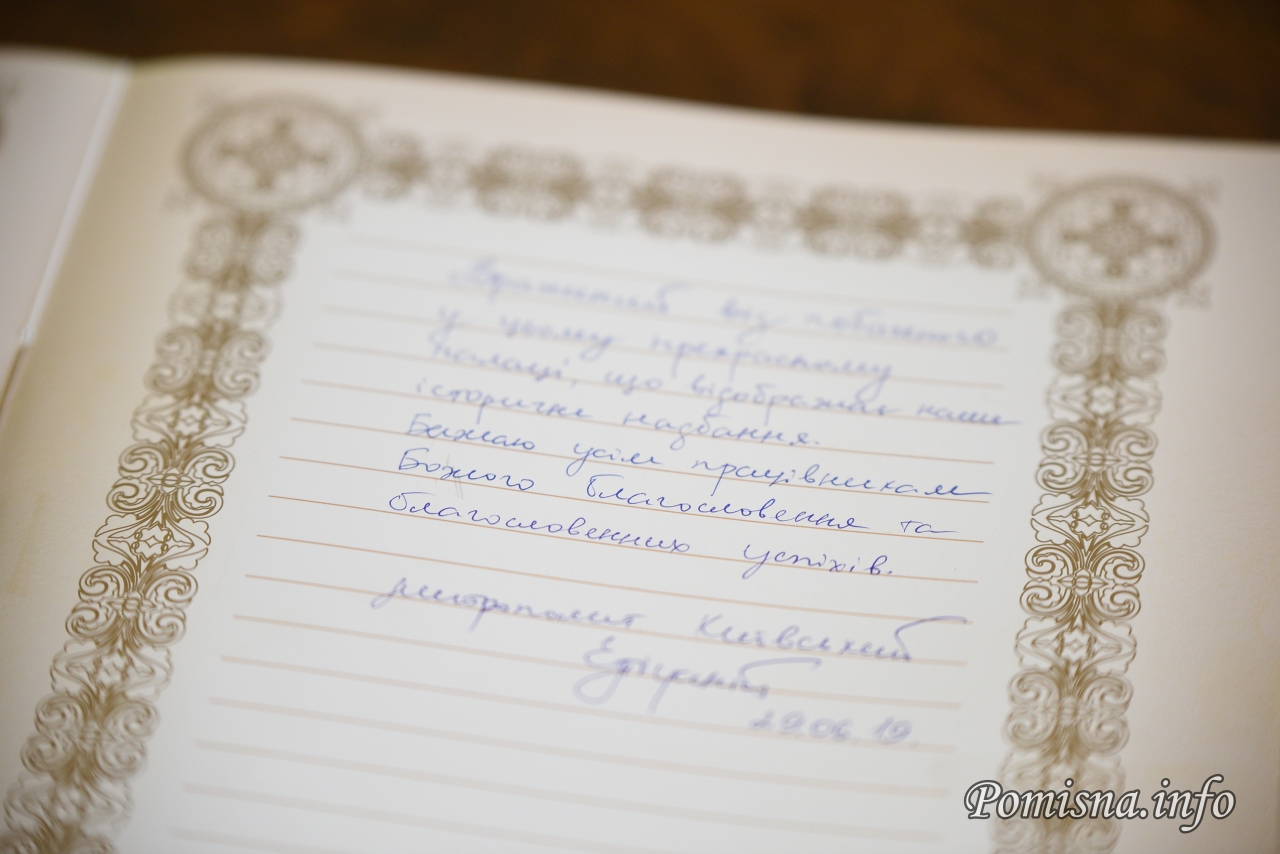 Вражений від побаченого
у цьому прекрасному
палаці, що відображає наші
історичні надбання.
Бажаю усім працівникам
Божого благословення та
благословенних успіхів.
митрополит Київський
Епіфаній
29.06.19.
Pomisna.info